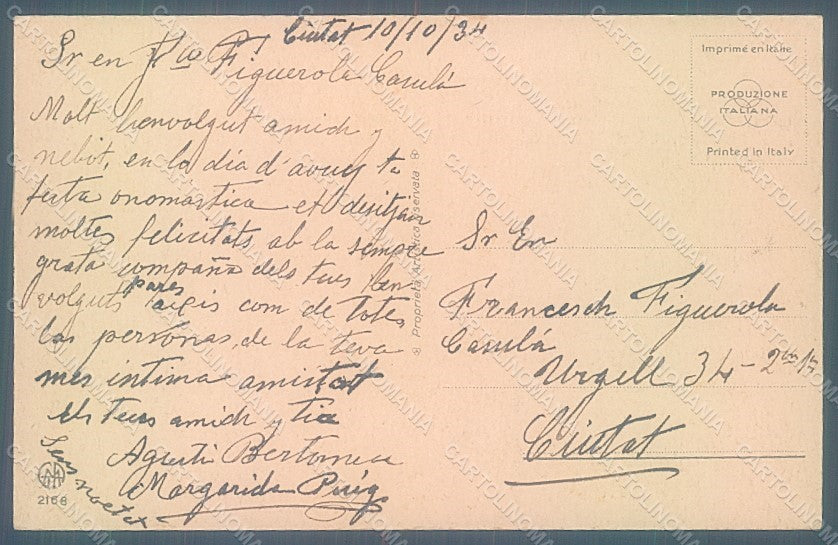 Ciutat 10/10/34
Sr en Fco Figuerola Casulá
Molt benvolgut amich y
nebot, en lo dia d'avuy ta
festa onomastica et desitjam
moltes felicitats ab la sempre
grata compañia dels teus ben
volguts pares aixis com de totes
las personas de la teva
mes intima amistat
els teus amich y tia
Agustí
Margarida Puig
2168
® Proprietà Artistica Riservata ®
Imprimé en Italie
PRODUZIONE
ITALIANA
Printed in Italy
Sr En
Francesch Figuerola
Casulá
Urgell 34 - 2on 1a
Ciutat
CARTOLINOMANIA